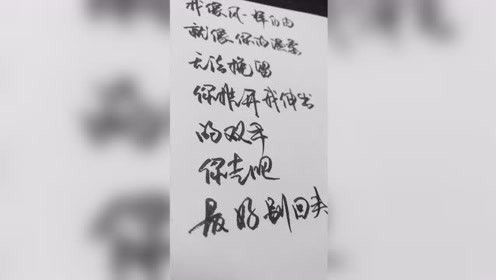 我像风一样自由
就像你的温柔
无法挽留
你推开我伸出
的双手
你走吧
最好别回头